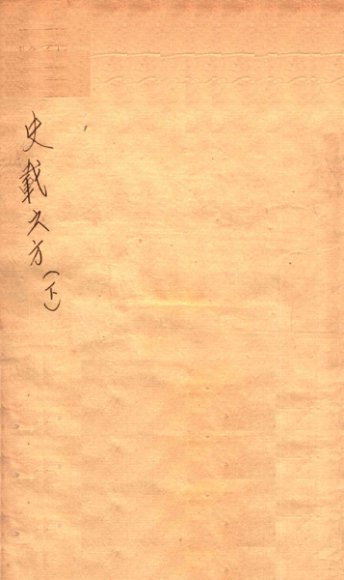 史載之方(下)